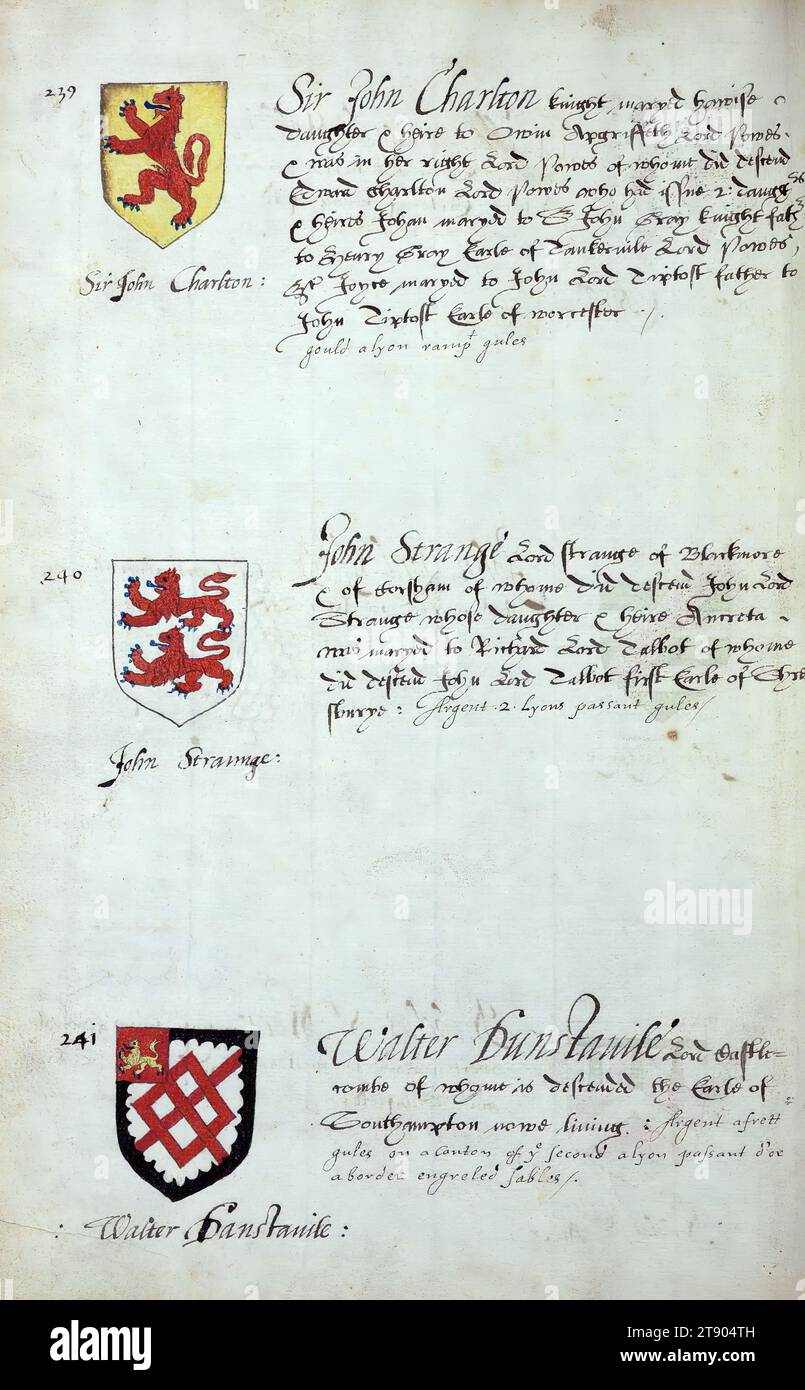 239
Sir John Charlton knight maryed hawise
daughter & heire to Owin Apgriffeth Lord Powes
& was in her right Lord Powes of whome did descend
Edward Charlton Lord Powes who had issue 2: daugg
& heires Johan maryed to Sr John Gray knight fath
to Henry Gray Earle of Tankervile Lord Powes,
& Joyce maryed to John Lord Tiptost father to
John Tiptost Earle of worcester /.
gould a lyon rampt gules
Sir John Charlton:
240
John Strange Lord strange of Blackmore
& of Corsham of whome did descend John Lord
Strange whose daughter & heire Ancreta
was maryed to Richard Lord Talbot of whome
did descend John Lord Talbot first Earle of Shre
sburye: Argent .2. Lyons passant gules/
John Straunge:
241
Walter Dunstavile Lord Castle=
combe of whome is descended the Earle of
Southampton nowe living: Argent a frett
gules on a Canton of ye second a lyon passant d'or
a border engreled sables/.
: Walter Danstavile:
alamy
alamy
Image ID: 2T904TH
www.alamy.com